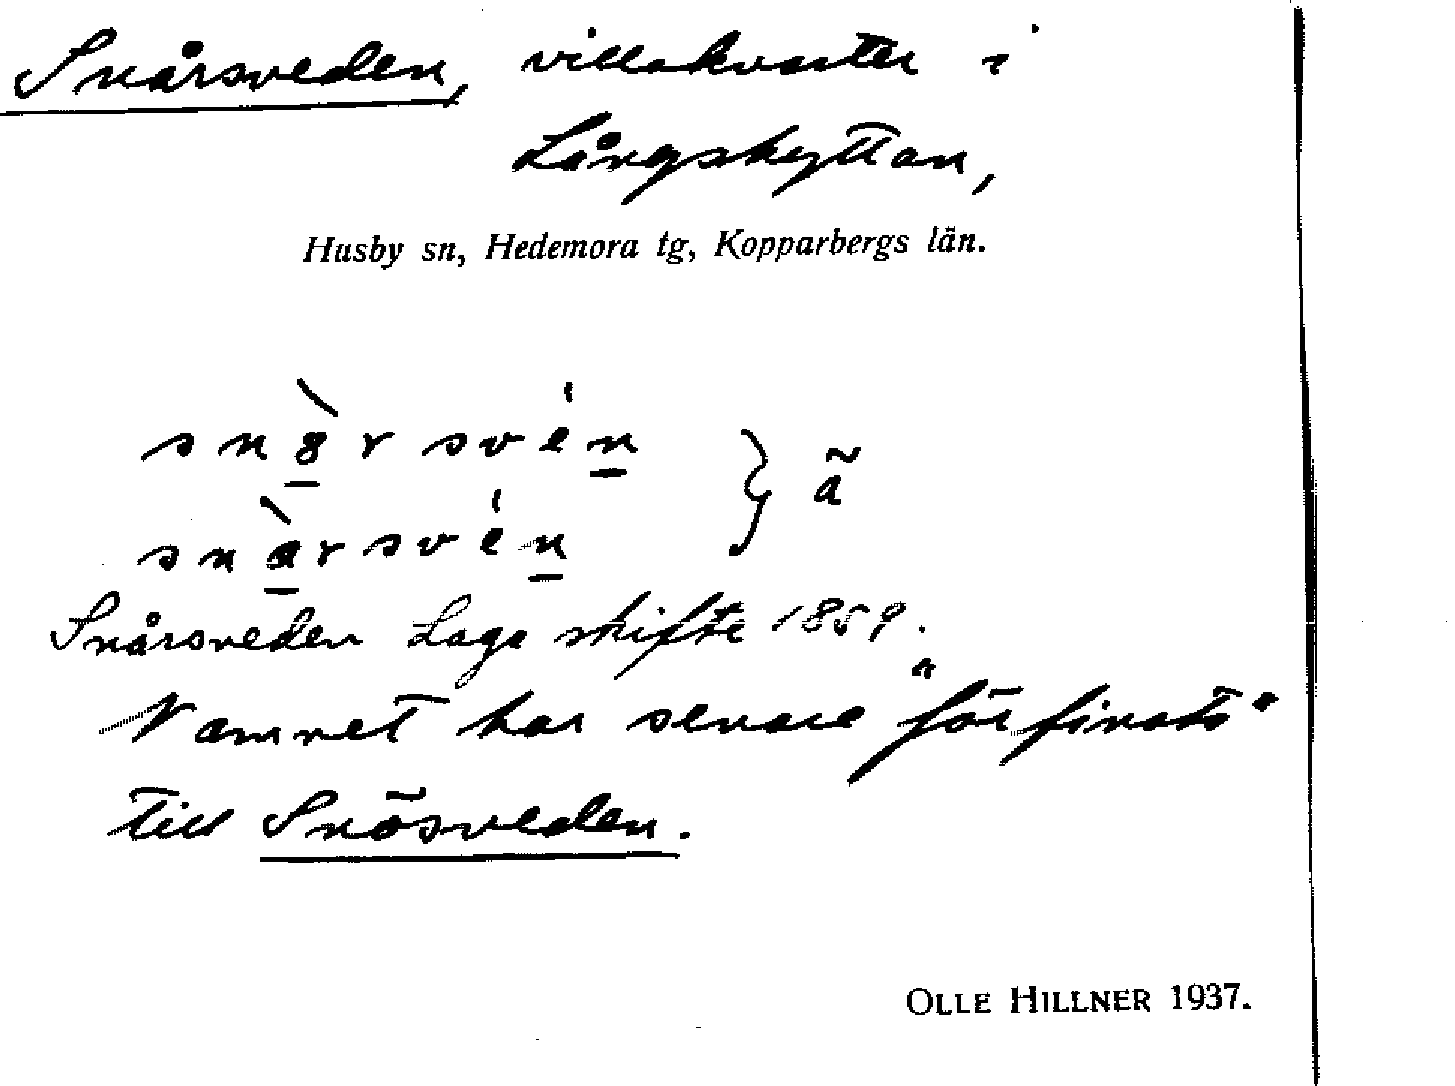 Snårsveden, villakvarter i
Långshyttan,
Husby sn, Hedemora tg, Kopparbergs län.
Snårsveden Laga skifte 1859.
Namnet har senare "förfinats"
till Snösveden.
OLLE HILLNER 1937.